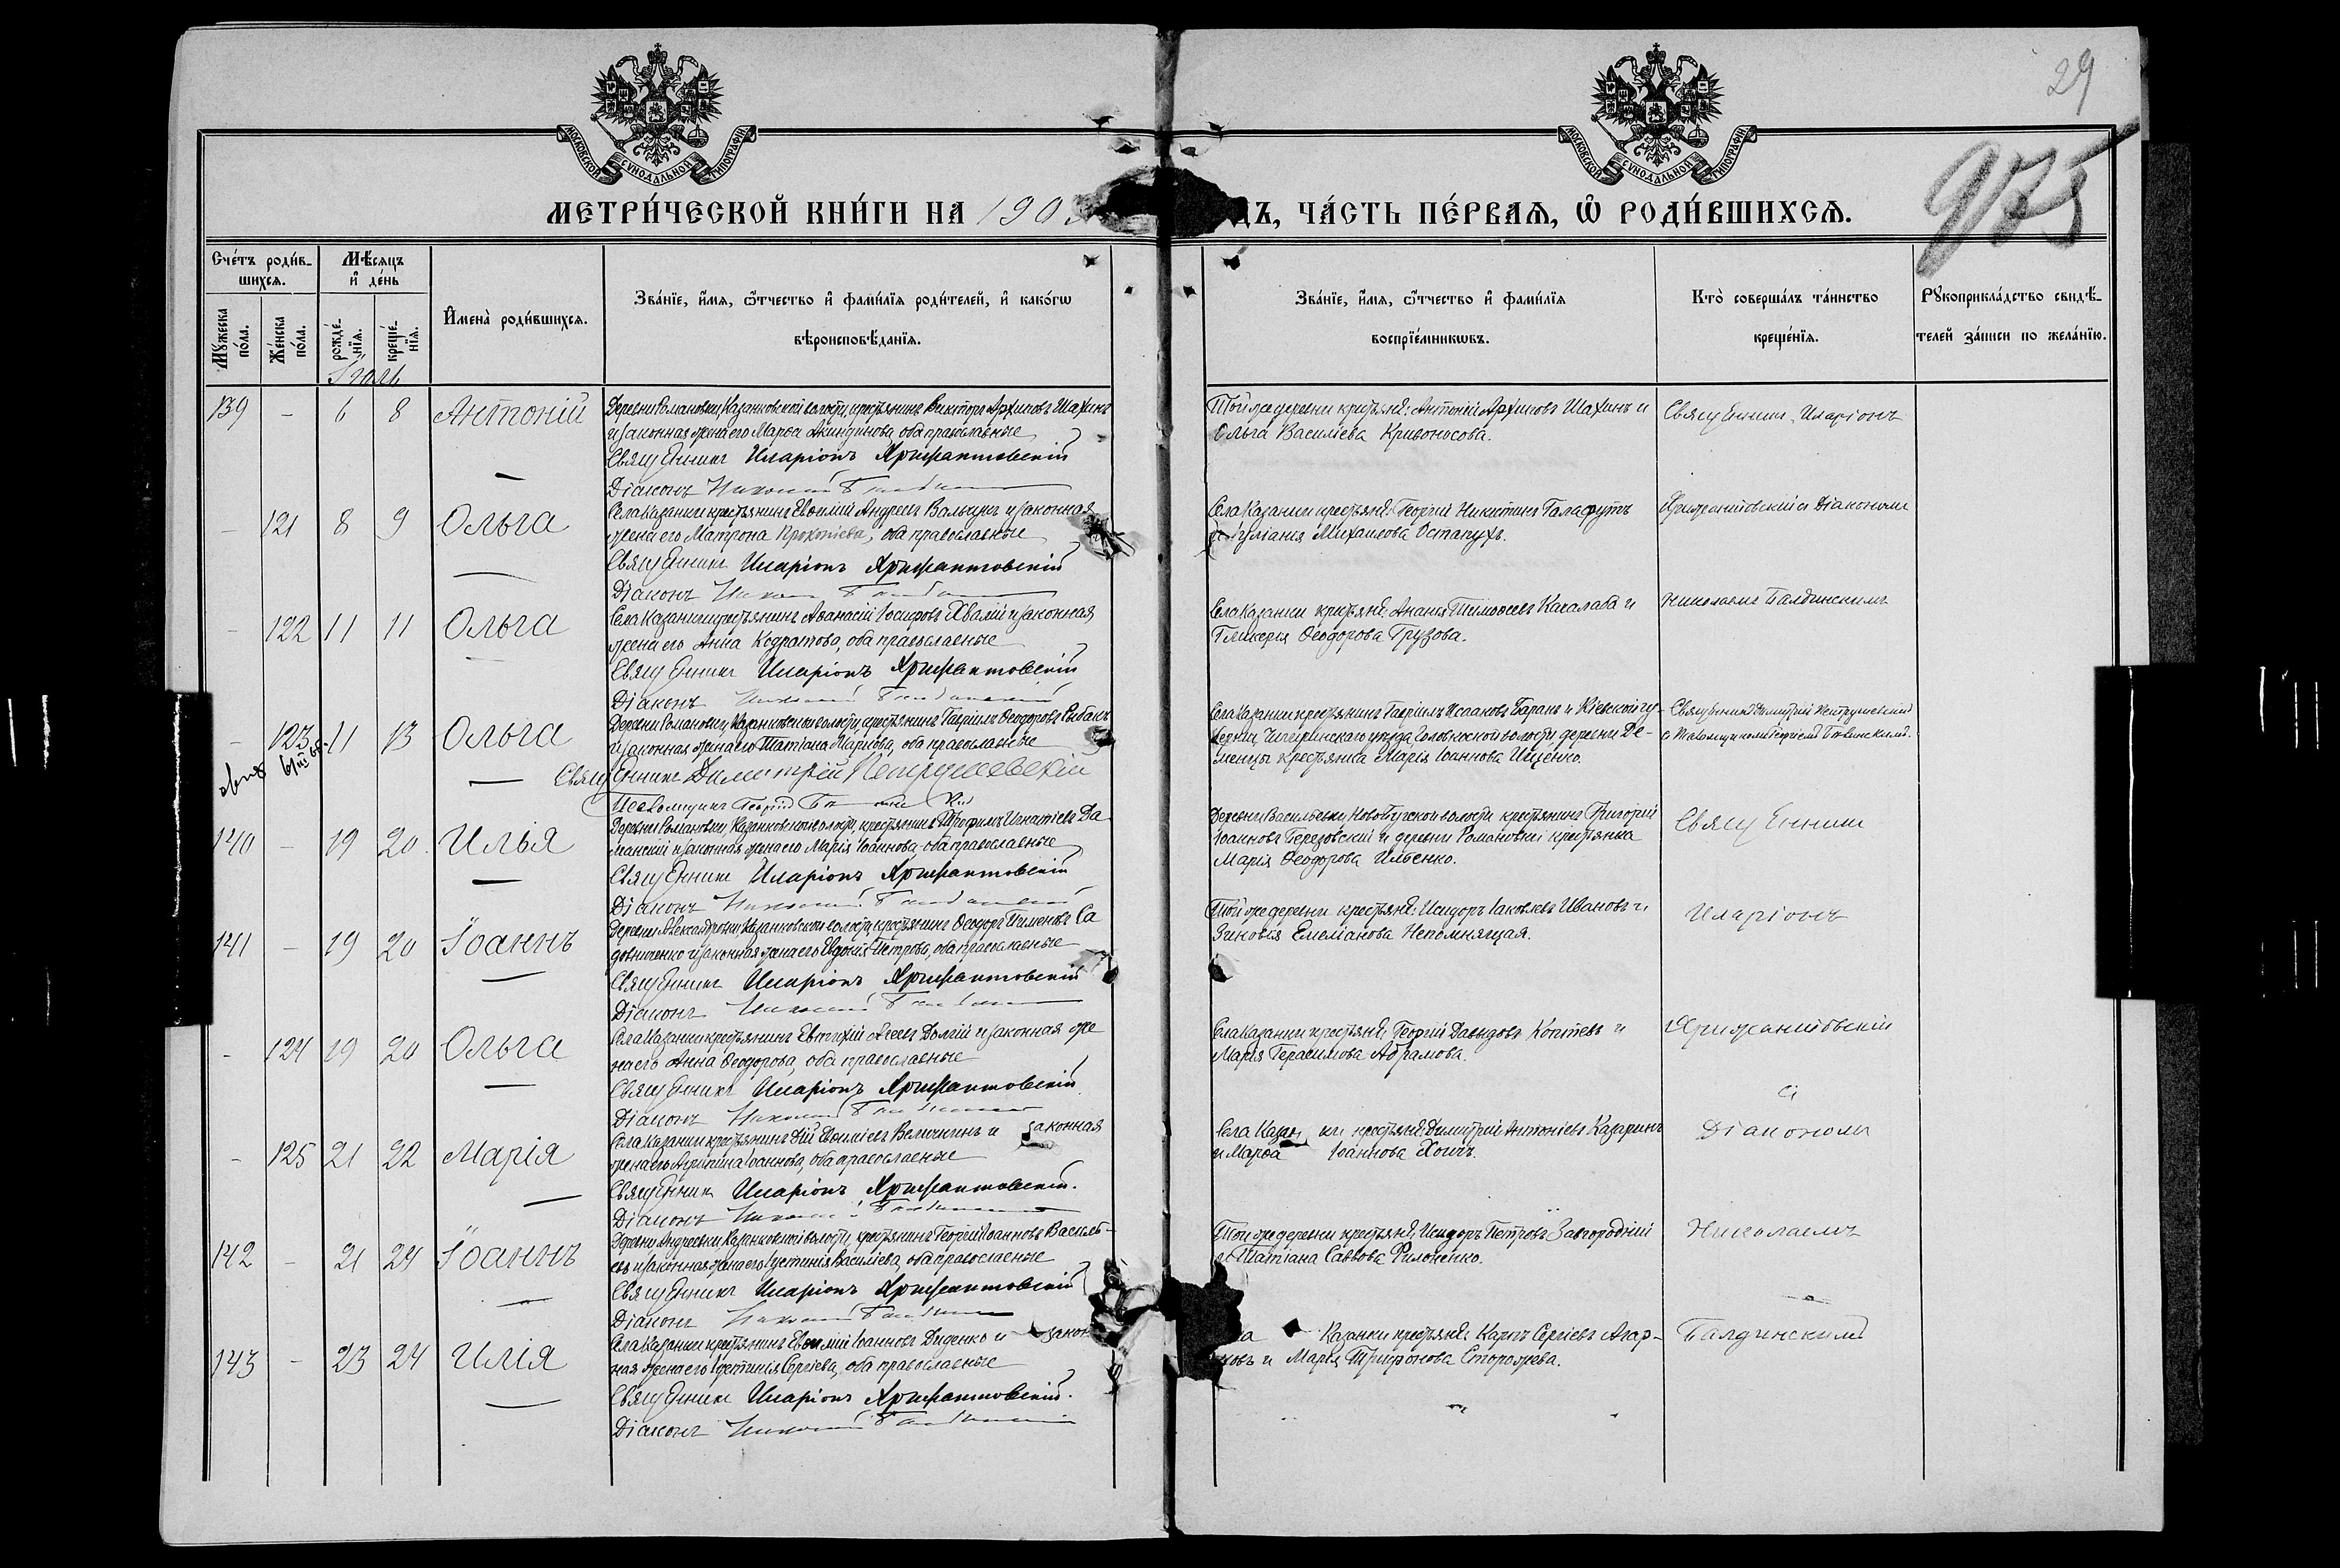 29
975
МОСКОВСКОЙ СѴНОДАЛЬНОЙ ТИПОГРАФІИ
МОСКОВСКОЙ СѴНОДАЛЬНОЙ ТИПОГРАФІИ
МЕТРИ́ЧЕСКОЙ КНИ́ГИ НА 190
ДЪ, ЧА́СТЬ ПЕ́РВАЯ, Ѡ҆ РОДИ́ВШИХСЯ.
Сче́тъ роди́вшихся.
Мѣ́сяцъ и҆ де́нь
Му́жеска по́ла.
Же́нска по́ла.
рожде́нїя.
креще́нїя.
И҆мена̀ роди́вшихся.
Зва́нїе, и҆́мя, ѻ҆́тчество и҆ фами́лїя роди́телей, и҆ како́гѡ
вѣроисповѣ́данїя.
Зва́нїе, и҆́мя, ѻ҆́тчество и҆ фами́лїя
воспрїе́мникѡвъ.
Кто̀ соверша́лъ та́инство
креще́нїя.
Рукоприкла́дство свидѣ́-
телей за́писи по жела́нїю.
Іюль
139 - 6 8 Антоній
Деревни Романовки, Казанковской волости, крестьянинъ Викторъ Архиповъ Шахинъ
и законная жена его Марѳа Акиндинова, оба православные
Священникъ Иларіонъ Хрисантовскій
Діаконъ Николай
Той же деревни крестьяне: Антоній Архиповъ Шахинъ и
Ольга Василіева Кривоносова.
Священникъ Иларіонъ
- 121 8 9 Ольга
Села Казанки крестьянинъ Евѳимій Андреевъ и законная
жена его Матрона Прокопіева, оба православные
Священникъ Иларіонъ Хрисантовскій
Діаконъ
Села Казанки крестьяне: Георгій Никитинъ Галафутъ
и Іуліанія Михаилова Остапухъ.
Хрисантовскій съ Діакономъ
- 122 11 11 Ольга
Села Казанки крестьянинъ Аѳанасій Іосифовъ и законная
жена его Анна Кодратова, оба православные
Священникъ Иларіонъ Хрисантовскій
Діаконъ Николай
Села Казанки крестьяне: Ананія Тимоѳеевъ Качалаба и
Гликерія Ѳеодорова Грузова.
Николаемъ Балдинскимъ
- 123 11 13 Ольга
Деревни Романовки, Казанковской волости, крестьянинъ Гавріилъ Ѳеодоровъ Рыбакъ
и законная жена его Татіана Маркова, оба православные
Священникъ Димитрій Петрушевскій
Псаломщикъ Георгій
Села Казанки крестьянинъ Гавріилъ Исааковъ Баранъ и Кіевской гу-
берніи, Чигиринскаго уѣзда, Головковской волости, деревни Де-
менцы крестьянка Марія Іоаннова Ищенко.
Священникъ Димитрій Петрушевскій
съ Псаломщикомъ Георгіемъ
140 - 19 20 Илья
Деревни Романовки, Казанковской волости, крестьянинъ Трофимъ Игнатіевъ Да-
манскій и законная жена его Марія Іоаннова, оба православные
Священникъ Иларіонъ Хрисантовскій
Діаконъ Николай
Деревни Васильевки Новобугской волости крестьянинъ Григорій
Іоанновъ Березовскій и деревни Романовки крестьянка
Марія Ѳеодорова Ильенко.
Священникъ
141 - 19 20 Іоаннъ
Деревни Александровки, Казанковской волости, крестьянинъ Ѳеодоръ Пименовъ Са-
довниченко и законная жена его Евдокія Петрова, оба православные
Священникъ Иларіонъ Хрисантовскій
Діаконъ Николай
Той же деревни крестьяне: Исидоръ Іаковлевъ Ивановъ и
Зиновія Емеліанова Непомнящая.
Иларіонъ
- 124 19 20 Ольга
Села Казанки крестьянинъ Евтихій Долгій и законная же-
на его Анна Ѳеодорова, оба православные
Священникъ Иларіонъ Хрисантовскій
Діаконъ Николай
Села Казанки крестьяне: Георгій Давыдовъ и
Марія Герасимова Абрамова.
Хрисантовскій
съ
- 125 21 22 Марія
Села Казанки крестьянинъ Евѳиміевъ Величкинъ и законная
жена его Агрипина Іоаннова, оба православные
Священникъ Иларіонъ Хрисантовскій.
Діаконъ
Села Казанки крестьяне: Димитрій Антоніевъ Казаринъ
и Марѳа Іоаннова
Діакономъ
142 - 21 24 Іоаннъ
Деревни Андреевки Казанковской волости, крестьянинъ Георгій Іоанновъ Василь-
евъ и законная жена его Іустинія Василіева, оба православные
Священникъ Иларіонъ Хрисантовскій
Діаконъ
Той же деревни крестьяне: Исидоръ Петровъ Завгородній
и Татіана Саввова Филоненко.
Николаемъ
143 - 23 24 Илія
Села Казанки крестьянинъ Евѳимій Іоанновъ Диденко и закон-
ная жена его Іустинія Сергіева, оба православные
Священникъ Иларіонъ Хрисантовскій.
Діаконъ Николай
Казанки крестьяне: Карпъ Сергіевъ Агар-
ковъ и Марія Трифонова Сторожева.
Балдинскимъ